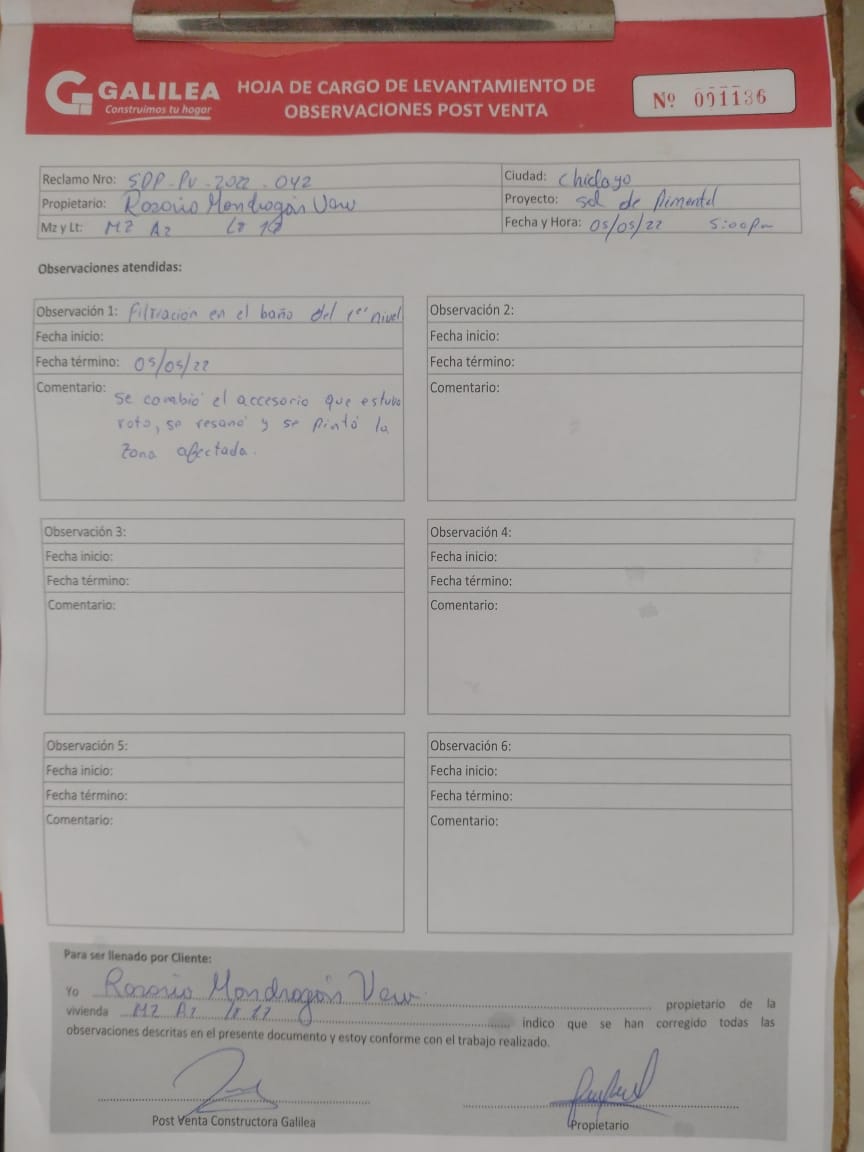 GALILEA
Construimos tu hogar
HOJA DE CARGO DE LEVANTAMIENTO DE
OBSERVACIONES POST VENTA
Nº 001136
Reclamo Nro: SDP-PV-2022-042
Ciudad: Chiclayo
Propietario: Rosario Mondragón
Proyecto: Sol de Pimentel
Mz y Lt: MZ A2 Lt
Fecha y Hora: 05/05/22 5:00pm
Observaciones atendidas:
Observación 1: Filtracion en el baño del 1er nivel
Fecha inicio:
Fecha término: 05/05/22
Comentario: Se cambió el accesorio que estubo
roto, se resanó y se pintó la
zona afectada.
Observación 2:
Fecha inicio:
Fecha término:
Comentario:
Observación 3:
Fecha inicio:
Fecha término:
Comentario:
Observación 4:
Fecha inicio:
Fecha término:
Comentario:
Observación 5:
Fecha inicio:
Fecha término:
Comentario:
Observación 6:
Fecha inicio:
Fecha término:
Comentario:
Para ser llenado por Cliente:
Yo Rosario Mondragón propietario de la
vivienda MZ A2 Lt indico que se han corregido todas las
observaciones descritas en el presente documento y estoy conforme con el trabajo realizado.
Post Venta Constructora Galilea
Propietario